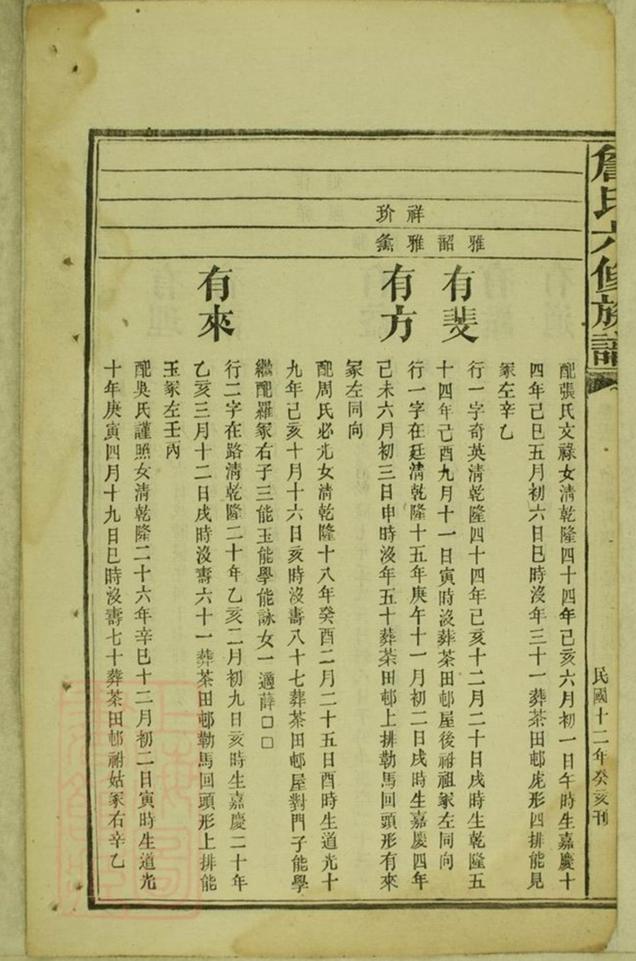 詹氏六修族譜
民國十二年癸亥刊
配張氏文祿女淸乾隆四十四年己亥六月初一日午時生嘉慶十
四年己巳五月初六日巳時沒年三十一葬茶田邨虎形四排能見
冢左辛乙
雅
韶
有斐
行一字奇英淸乾隆四十四年己亥十二月二十日戌時生乾隆五
十四年己酉九月十一日寅時沒葬茶田邨屋後祔祖冢左同向
祥雅
玠
有方
行一字在廷淸乾隆十五年庚午十一月初二日戌時生嘉慶四年
己未六月初三日申時沒年五十葬茶田邨上排勒馬回頭形有來
冢左同向
配周氏必光女淸乾隆十八年癸酉二月二十五日酉時生道光十
九年己亥十月十六日亥時沒壽八十七葬茶田邨屋對門子能學
繼配羅冢右子三能玉能學能詠女一適薛□□
有來
行二字在路淸乾隆二十年乙亥二月初九日亥時生嘉慶二十年
乙亥三月十二日戌時沒壽六十一葬茶田邨勒馬回頭形上排能
玉冢左壬丙
配吳氏謹照女淸乾隆二十六年辛巳十二月初二日寅時生道光
十年庚寅四月十九日巳時沒壽七十葬茶田邨祔姑冢右辛乙